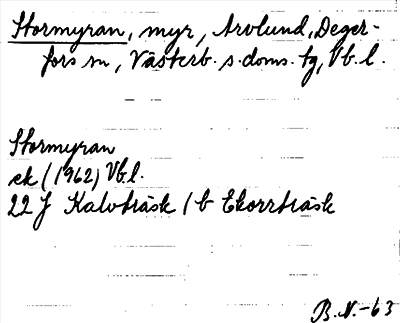 Stormyran, myr, Arvlund, Deger-
fors sn, Västerb. s. doms. tg, Vb. l.
Stormyran
ek (1962) Vb. l.
22 J Kalvträsk 1 b Ekorrträsk
B. N. -63